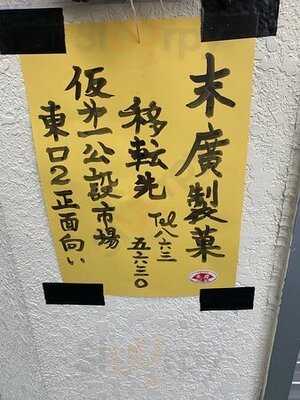 末廣製菓
移転先
Tel 八六三
五六三〇
仮第一公設市場
東口2正面向い